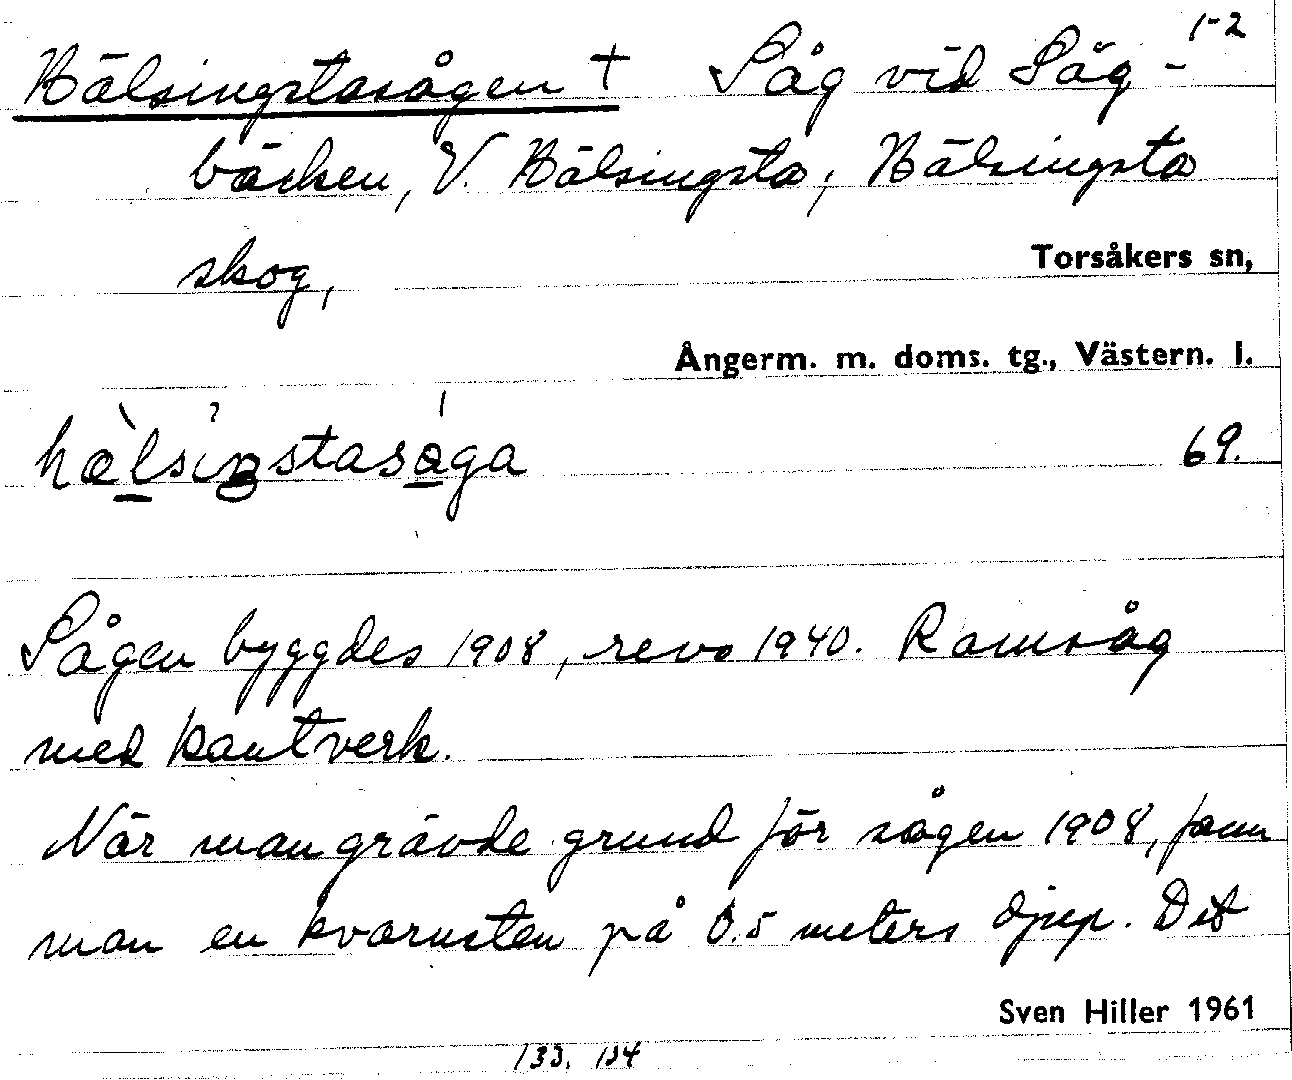 1-2
Hälsingstasågen + Såg vid Såg-
bäcken, V. Hälsingsta, Hälsingsta
skog,
Torsåkers sn,
Ångerm. m. doms. tg., Västern. l.
hälsiŋstasåga 69.
Sågen byggdes 1908, revs 1940. Ramsåg
med kantverk.
När man grävde grund för sågen 1908, fann
man en kvarnsten på 0.5 meters djup. Det
Sven Hiller 1961
133, 134